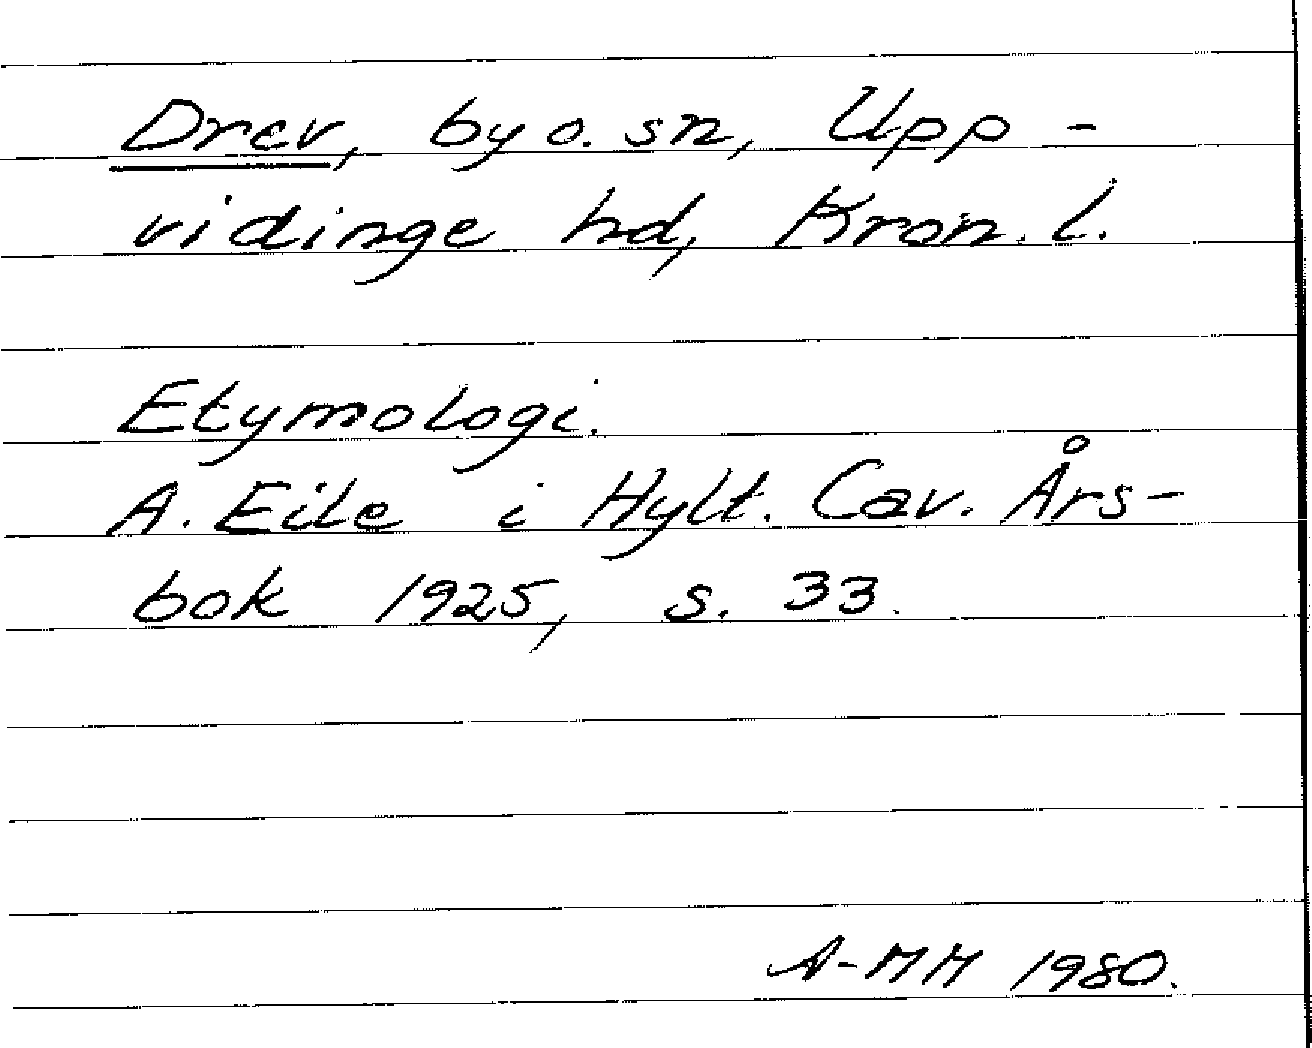 Drev, by o. sn, Upp-
vidinge hd, Kron. l.
Etymologi.
A. Eile i Hylt. Cav. Års-
bok 1925, s. 33.
A-MM 1980.